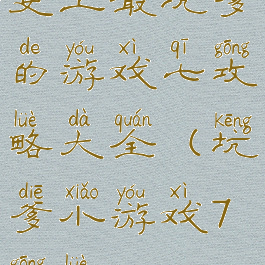 上最坑爹
de yóu xì qī gōng
的游戏七攻
lüè dà quán Kēng
略大全（坑
diē xiǎo yóu xì
爹小游戏7
gōng lüè